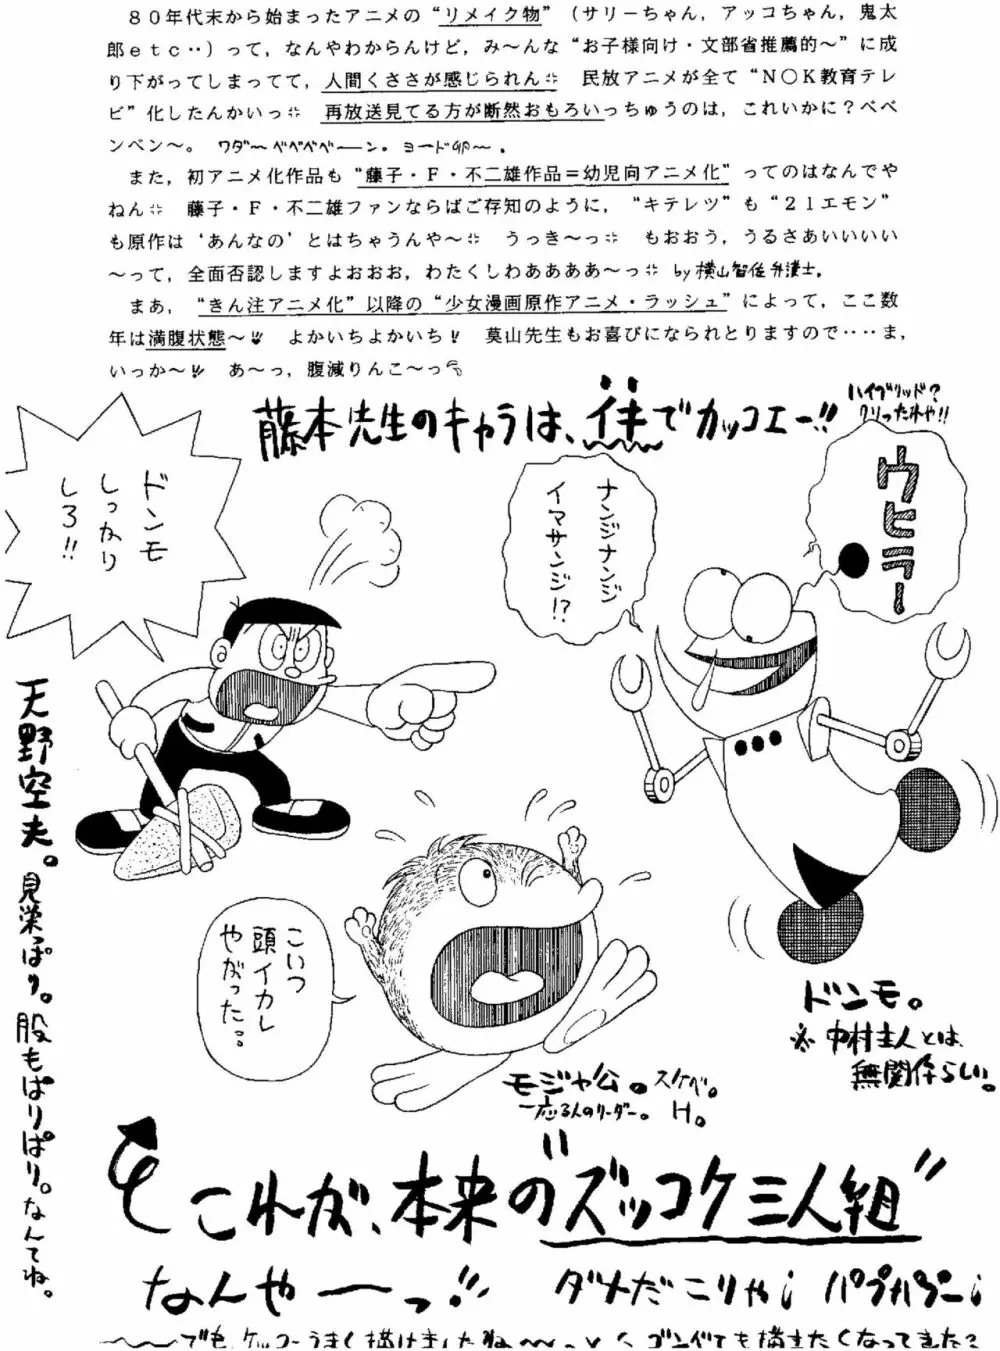 80年代末から始まったアニメの“リメイク物”（サリーちゃん，アッコちゃん，鬼太
郎etc‥）って，なんやわからんけど，み～んな“お子様向け・文部省推薦的～”に成
り下がってしまってて，人間くささが感じられん 民放アニメが全て“N○K教育テレ
ビ”化したんかいっ 再放送見てる方が断然おもろいっちゅうのは，これいかに？ベベ
ンベン～。 ワダ～ベベベベーーン。ヨード卵～。
また，初アニメ化作品も“藤子・F・不二雄作品＝幼児向アニメ化”ってのはなんでや
ねん 藤子・F・不二雄ファンならばご存知のように，“キテレツ”も“21エモン”
も原作は‘あんなの’とはちゃうんや～ うっき～っ もおおう，うるさあいいいい
～って，全面否認しますよおおお，わたくしわああああ～っ by横山智佐弁護士。
まあ，“きん注アニメ化”以降の“少女漫画原作アニメ・ラッシュ”によって，ここ数
年は満腹状態～!! よかいちよかいち! 莫山先生もお喜びになられとりますので‥‥ま，
いっか～!! あ～っ，腹減りんこ～っ
藤本先生のキャラは、イキでカッコエー!!
ハイブリッド？
クリったれや!!
ウヒラー
ナンジナンジ
イマサンジ!?
ドンモ
しっかり
しろ!!
天野空夫。見栄ぱり。股もぱりぱり。なんてね。
こいつ
頭イカレ
やがった‥
ドンモ。
※中村主人とは、
無関係らしい。
モジャ公。スケベ。
一応3人のリーダー。H。
これが、本来の“ズッコケ三人組”
なんやーーっ!! ダメだこりゃ! パプパプー!
～～でも、ケッコーうまく描けましたね～～っ